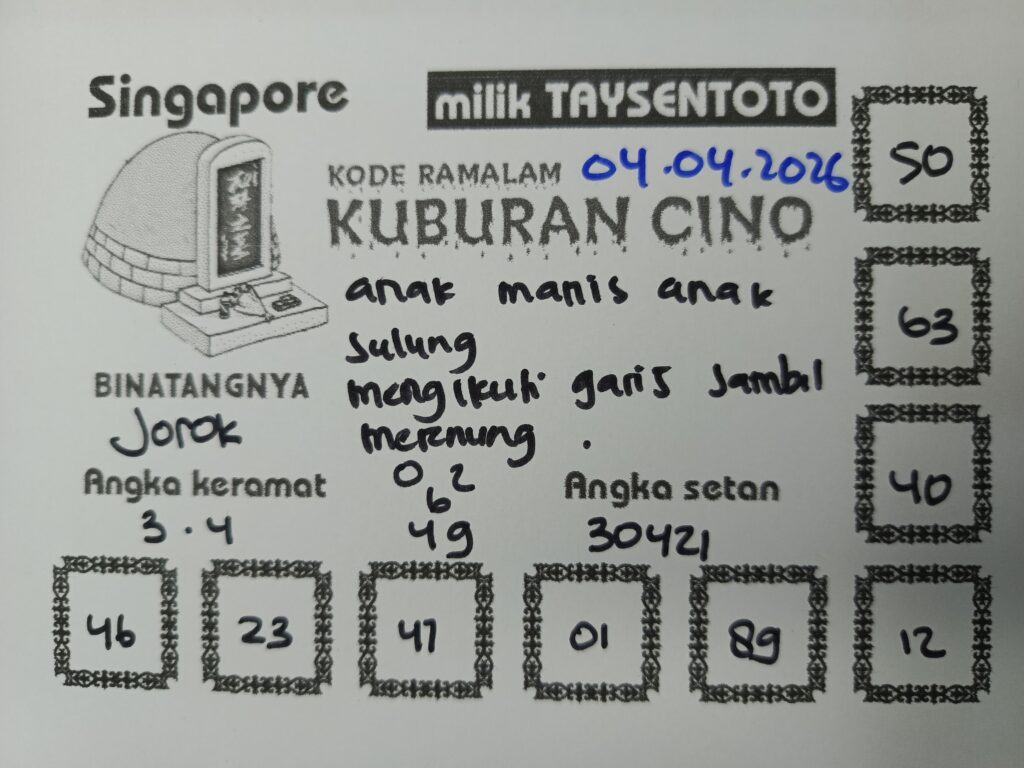 Singapore
milik TAYSENTOTO
KODE RAMALAM 04.04.2026
KUBURAN CINO
anak manis anak
sulung
mengikuti garis sambil
merenung .
BINATANGNYA
Jorok
Angka keramat
3 . 4
0 2
6
49
Angka setan
30421
50
63
40
46
23
41
01
89
12